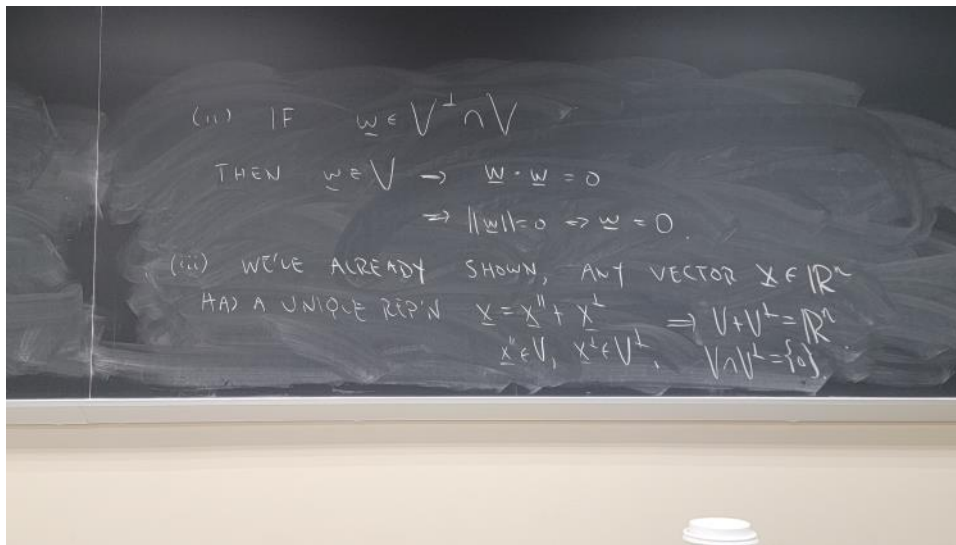 (ii) IF w ∈ V^⊥ ∩ V
THEN w ∈ V → w · w = 0
⇒ ||w|| = 0 ⇔ w = 0.
(iii) WE'VE ALREADY SHOWN, ANY VECTOR x ∈ ℝ^n
HAS A UNIQUE REP'N x = x^{||} + x^⊥ ⇒ V + V^⊥ = ℝ^n
x^{||} ∈ V, x^⊥ ∈ V^⊥, V ∩ V^⊥ = {0}.